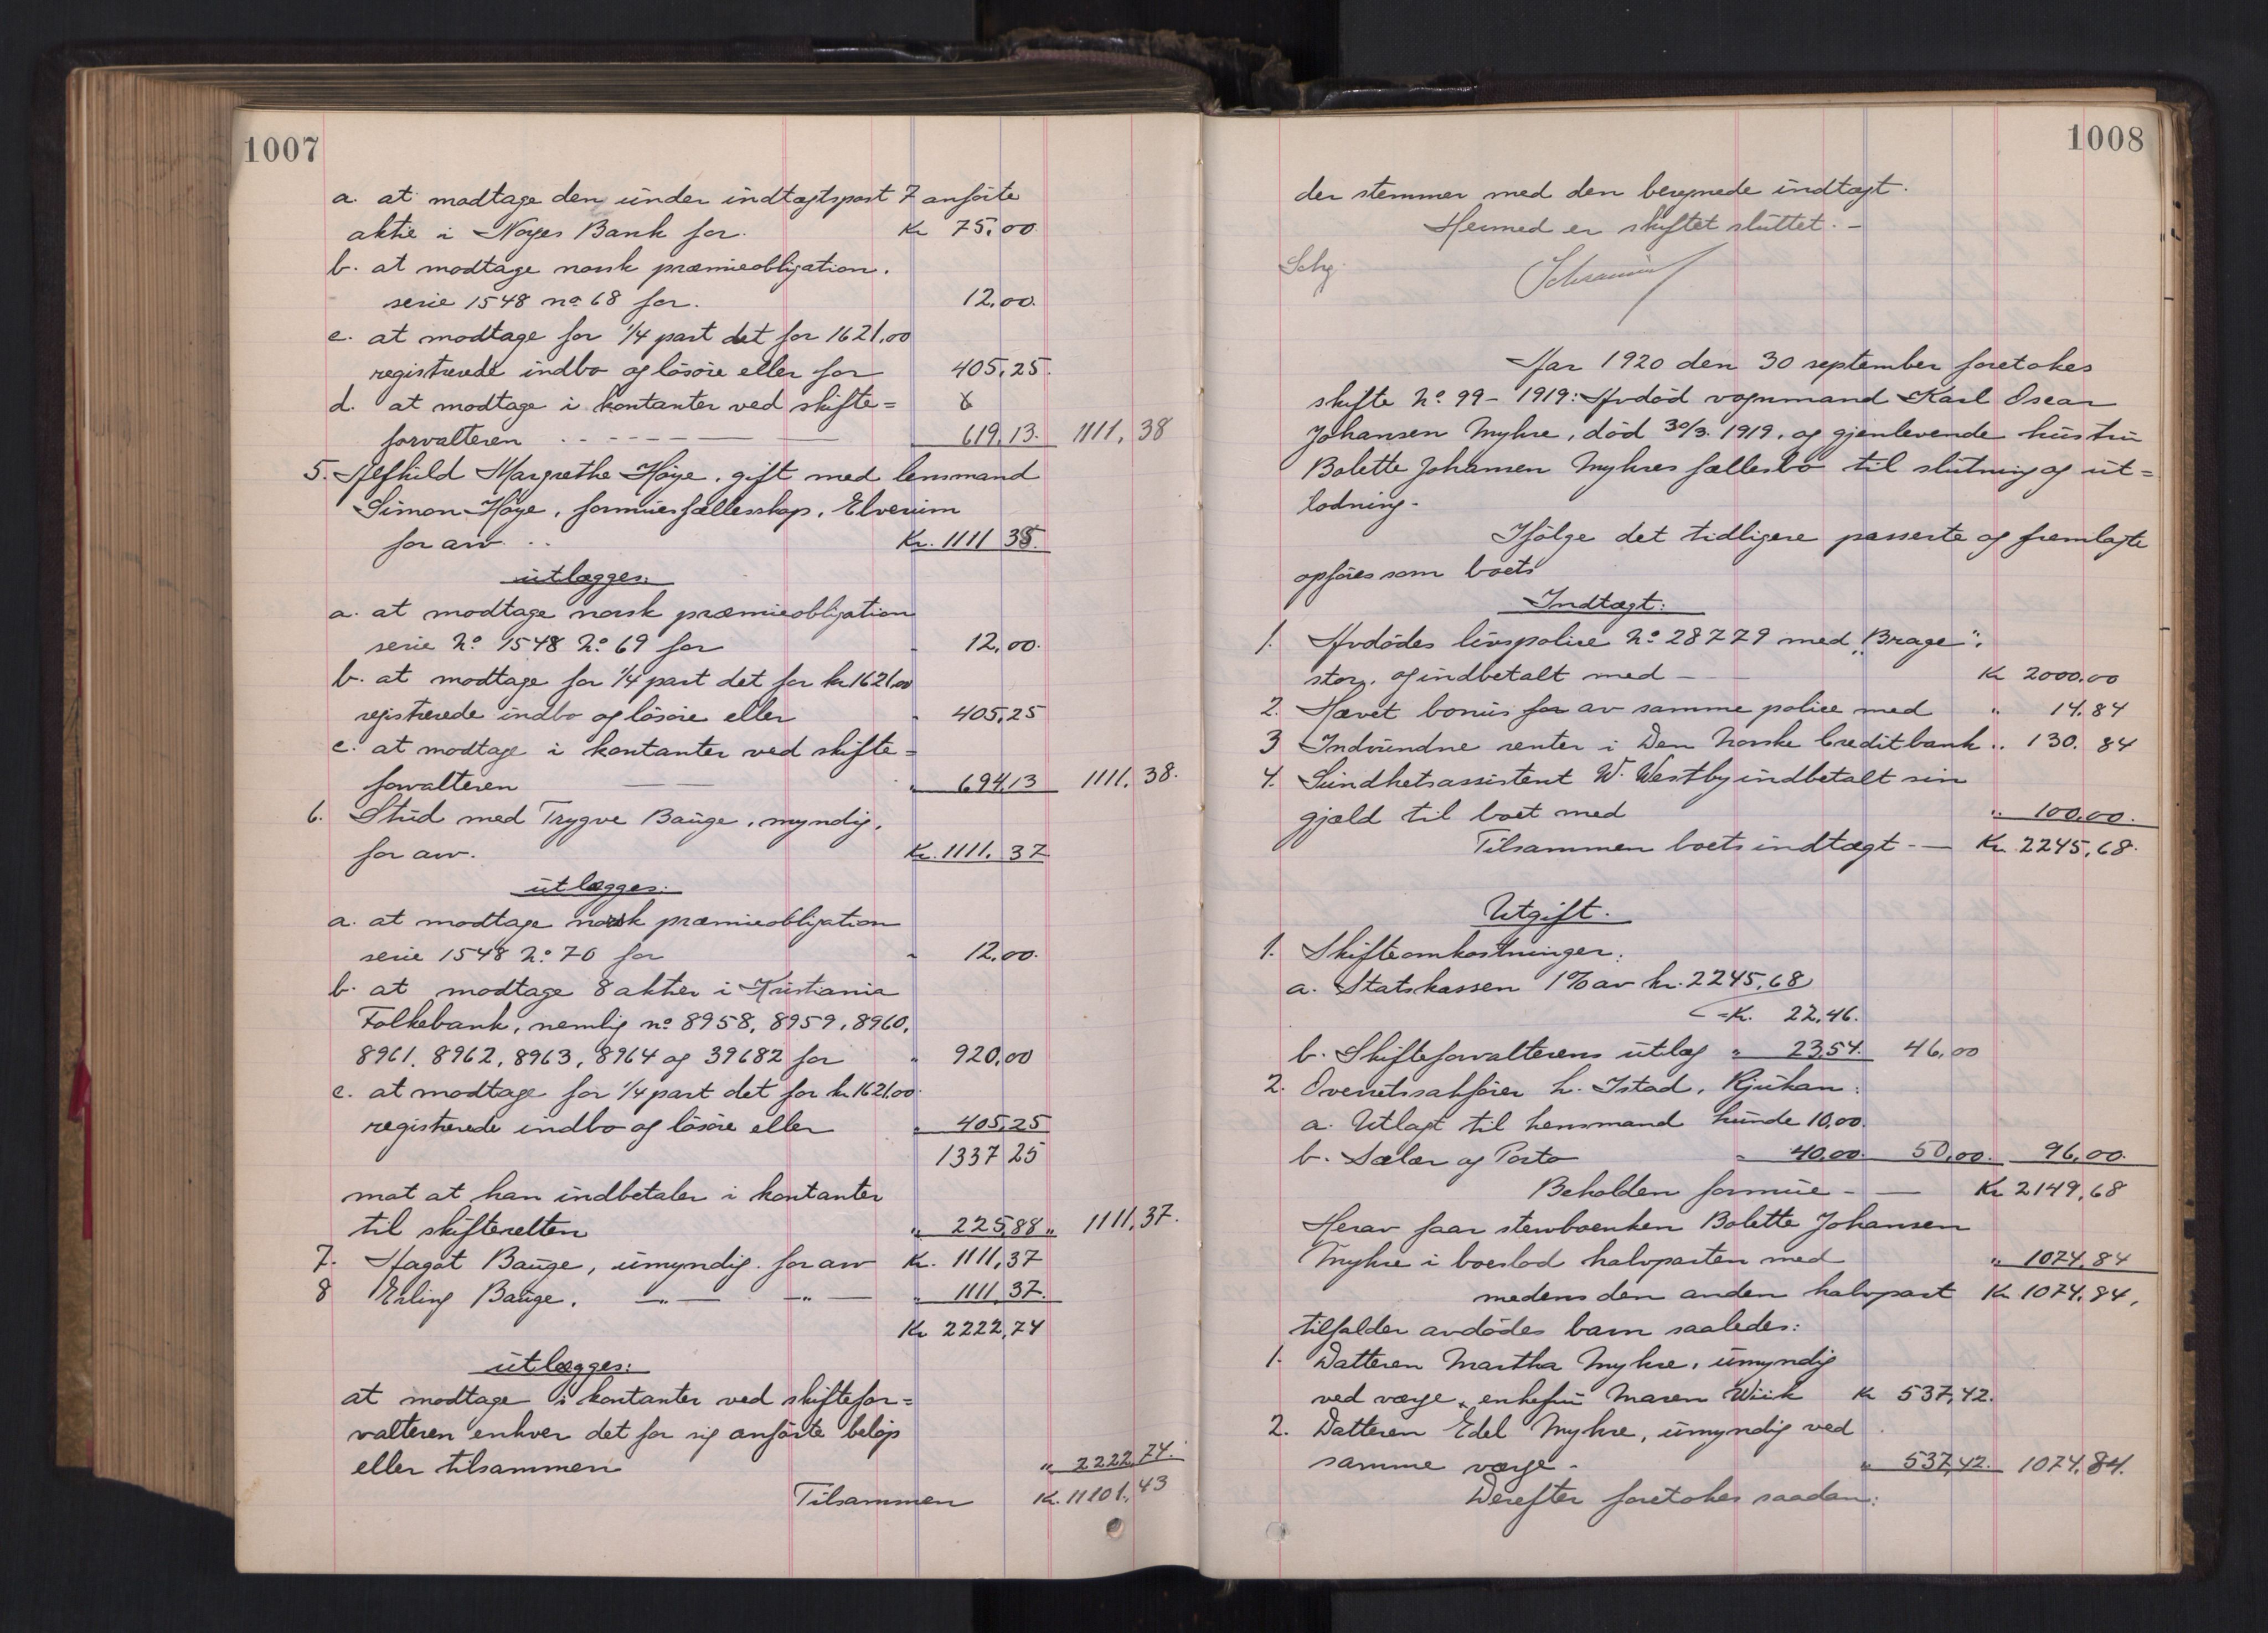 1007
a. at modtage den under indtægtspost 7 anførte
aktie i Norges Bank for. Kr 75,00.
b. at modtage norsk præmieobligation.
serie 1548 no 68 for. 12,00.
c. at modtage for 1/4 part det for 1621,00
registrerede indbo og løsøre eller for 405,25.
d. at modtage i kontanter ved skifte=
forvalteren 619,13. 1111,38
5. Alfhild Margrethe Høye, gift med lensmand
Simon Høye, formuesfællesskap, Elverum
for arv .. Kr. 1111 38.
utlægges:
a. at modtage norsk præmieobligation
serie No 1548 No 69 for 12,00.
b. at modtage for 1/4 part det for kr 1621,00
registrerede indbo og løsøre eller " 405,25
c. at modtage i kontanter ved skifte=
forvalteren " 694,13 1111,38.
6. Stud med Trygve Bauge, myndig,
for arv. Kr. 1111,37
utlægges:
a. at modtage norsk præmieobligation
serie 1548 No 70 for " 12,00.
b. at modtage 8 aktier i Kristiania
Folkebank, nemlig no 8958, 8959, 8960,
8961, 8962, 8963, 8964 og 39682 for " 920,00
c. at modtage for 1/4 part det for kr 1621,00.
registrerede indbo og løsøre eller " 405,25
1337 25
mot at han indbetaler i kontanter
til skifteretten " 225,88 " 1111,37.
7. Aagot Bauge, umyndig. for arv Kr. 1111,37
8 Erling Bauge. —"— —"— " 1111,37.
Kr 2222,74
utlægges:
at modtage i kontanter ved skiftefor=
valteren enhver det for sig anførte beløp
eller tilsammen " 2222,74.
Tilsammen Kr. 11101,43
1008
der stemmer med den beregnede indtægt.
Hermed er skiftet sluttet. -
Aar 1920 den 30 september foretokes
skifte No 99 - 1919: Avdød vognmand Karl Oscar
Johansen Myhre, død 30/3. 1919, og gjenlevende hustru
Bolette Johansen Myhres fællesbo til slutning og ut=
lodning.
Ifølge det tidligere passerte og fremlagte
opføres som boets
Indtægt:
1. Avdødes livspolice No 28779 med "Brage".
stor, og indbetalt med - Kr 2000,00
2. Hævet bonus for av samme police med " 14.84
3 Indvundne renter i Den Norske Creditbank " 130.84
4. Sundhetsassistent W. Westby indbetalt sin
gjæld til boet med " 100,00.
Tilsammen boets indtægt - — Kr 2245,68.
Utgift.
1. Skifteomkostninger:
a. Statskassen 1% av kr. 2245,68
= K. 22,46.
b. Skifteforvalterens utlæg " 23,54. 46,00
2. Overretssakfører h. Istad, Rjukan:
a. Utlagt til lensmand Lunde 10,00.
b. Salær og Porto " 40,00. 50,00. 96,00.
Beholden formue - — Kr 2149,68
Herav faar stervboenken Bolette Johansen
Myhre i boeslod halvparten med " 1074,84
medens den anden halvpart Kr 1074,84,
tilfalder avdødes barn saaledes:
1. Datteren Martha Myhre, umyndig
ved verge, enkefru Maren Wiik Kr 537,42.
2. Datteren Edel Myhre, umyndig ved
samme verge - " 537,42. 1074,84.
Derefter foretokes saadan: